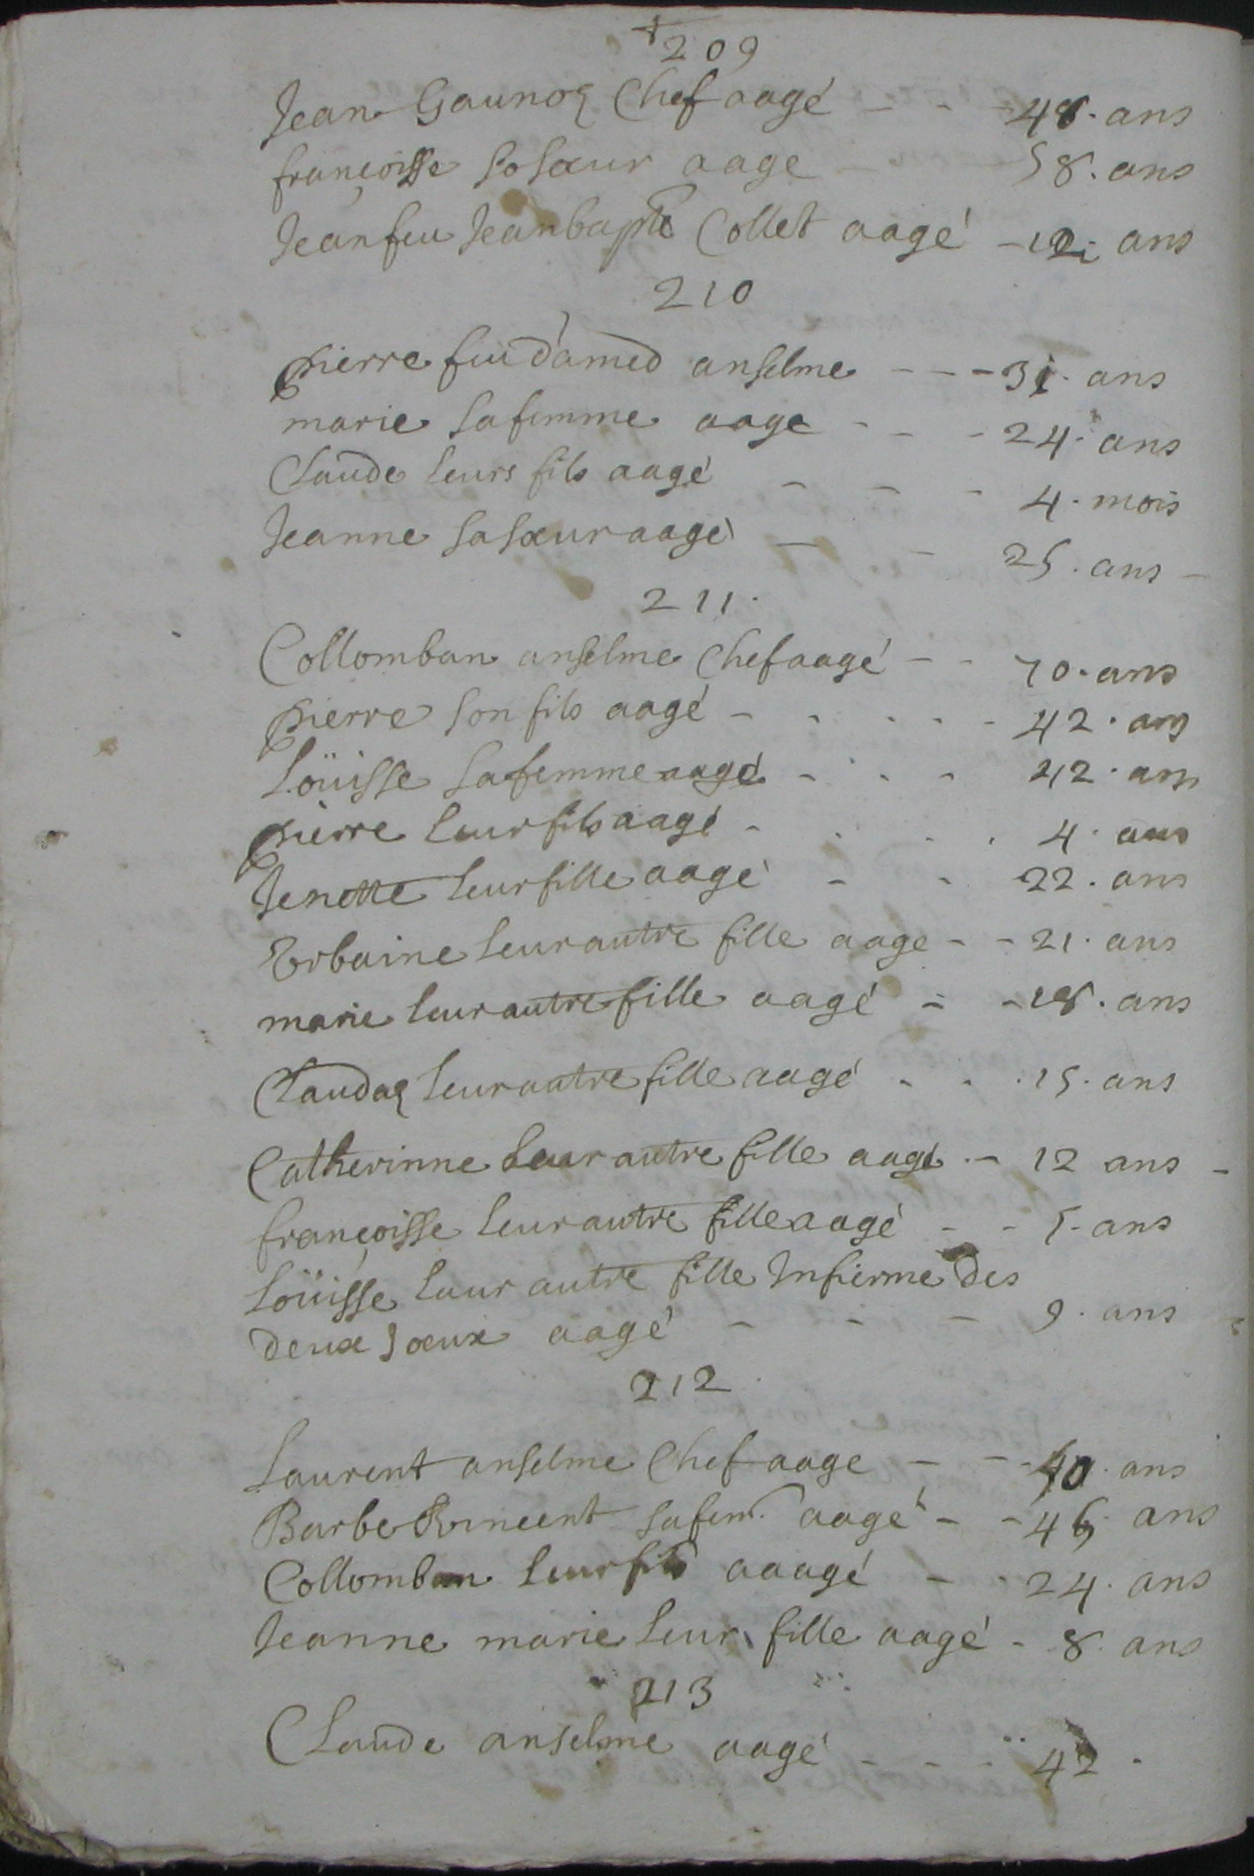 209
Jean Gaunoz Chef aagé - - - 48. ans
françoisse sa sœur aage - 58. ans
Jean feu Jean bapte Collet aagé - 12. ans
210
pierre feu d'amed anselme - - - 31. ans
marie sa femme aage - - - 24. ans
Claude leurs fils aagé - - - 4. mois
Jeanne sa sœur aagé - - 25. ans -
211.
Collomban anselme Chef aagé - - 70. ans
pierre son fils aagé - - - - - 42. ans
Loüisse sa femme aagé - - - - 42. ans
pierre leur fils aagé - - - - 4. ans
Jenette leur fille aagé - - 22. ans
Vrbaine leur autre fille aage - - 21. ans
marie leur autre fille aagé - - 18. ans
Claudaz leur autre fille aagé - - - 15. ans
Catherinne leur autre fille aagé - - 12 ans -
françoisse leur autre fille aagé - - 5. ans
Loüisse leur autre fille Infierme des
deux yeux aagé - - - 9. ans
212.
Laurent anselme Chef aage - - - ans
Barbe Vincent sa fem. aagé - - 46. ans
Collomban leur fils aaagé - - 24. ans
Jeanne marie leur fille aagé - 8. ans
213
Claude anselme aagé - - - 42.